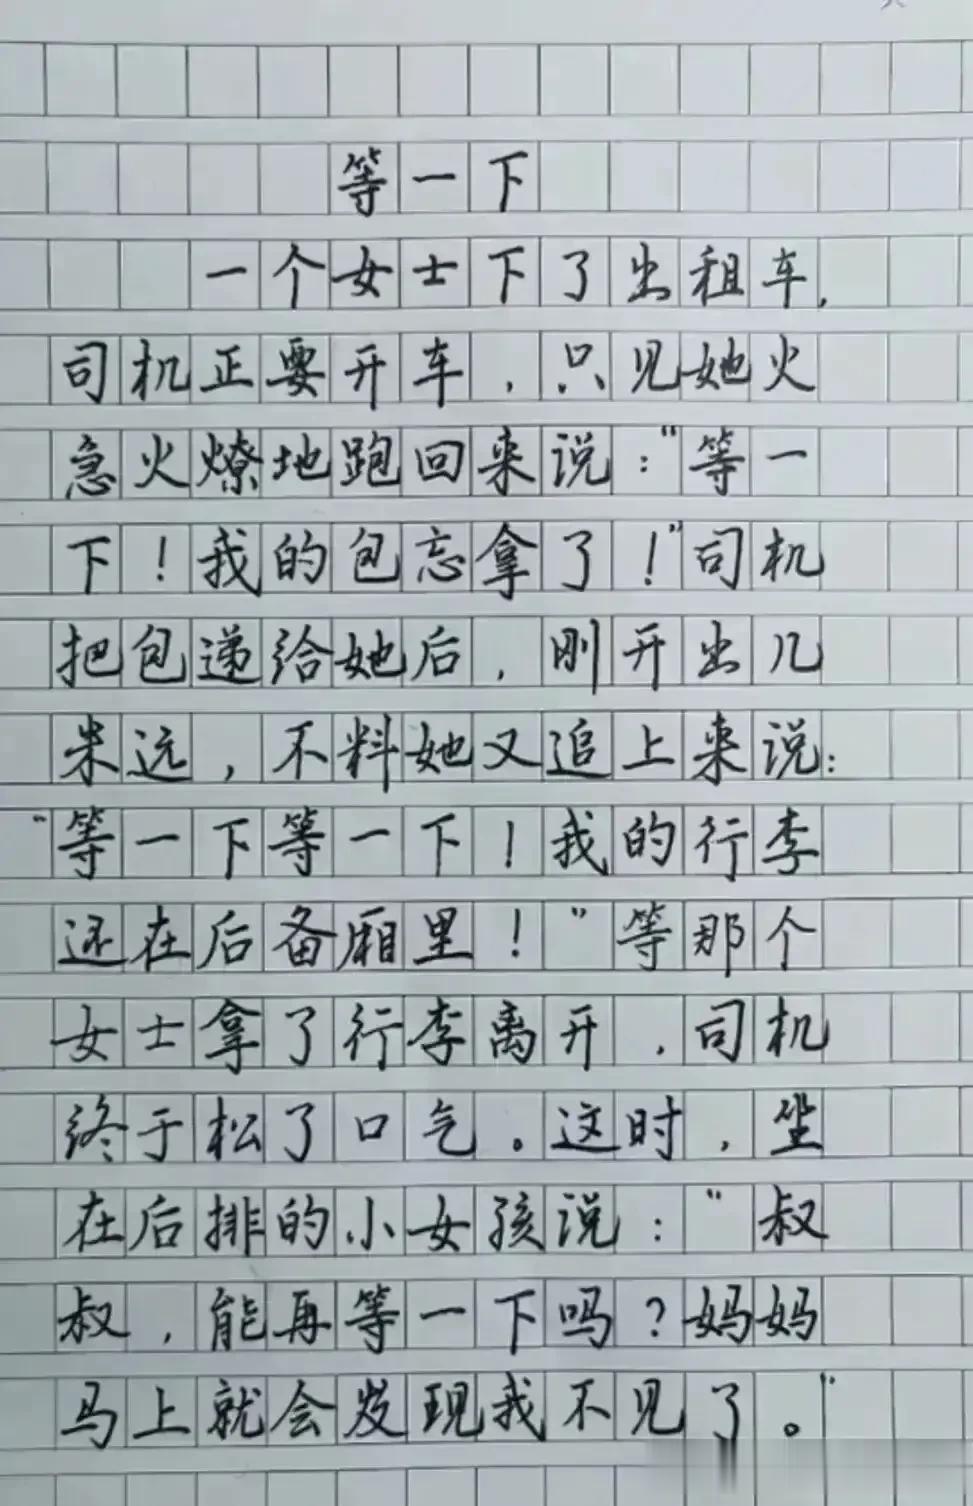 等一下
一个女士下了出租车，
司机正要开车，只见她火
急火燎地跑回来说：“等一
下！我的包忘拿了！”司机
把包递给她后，刚开出几
米远，不料她又追上来说：
“等一下等一下！我的行李
还在后备厢里！”等那个
女士拿了行李离开，司机
终于松了口气。这时，坐
在后排的小女孩说：“叔
叔，能再等一下吗？妈妈
马上就会发现我不见了。”